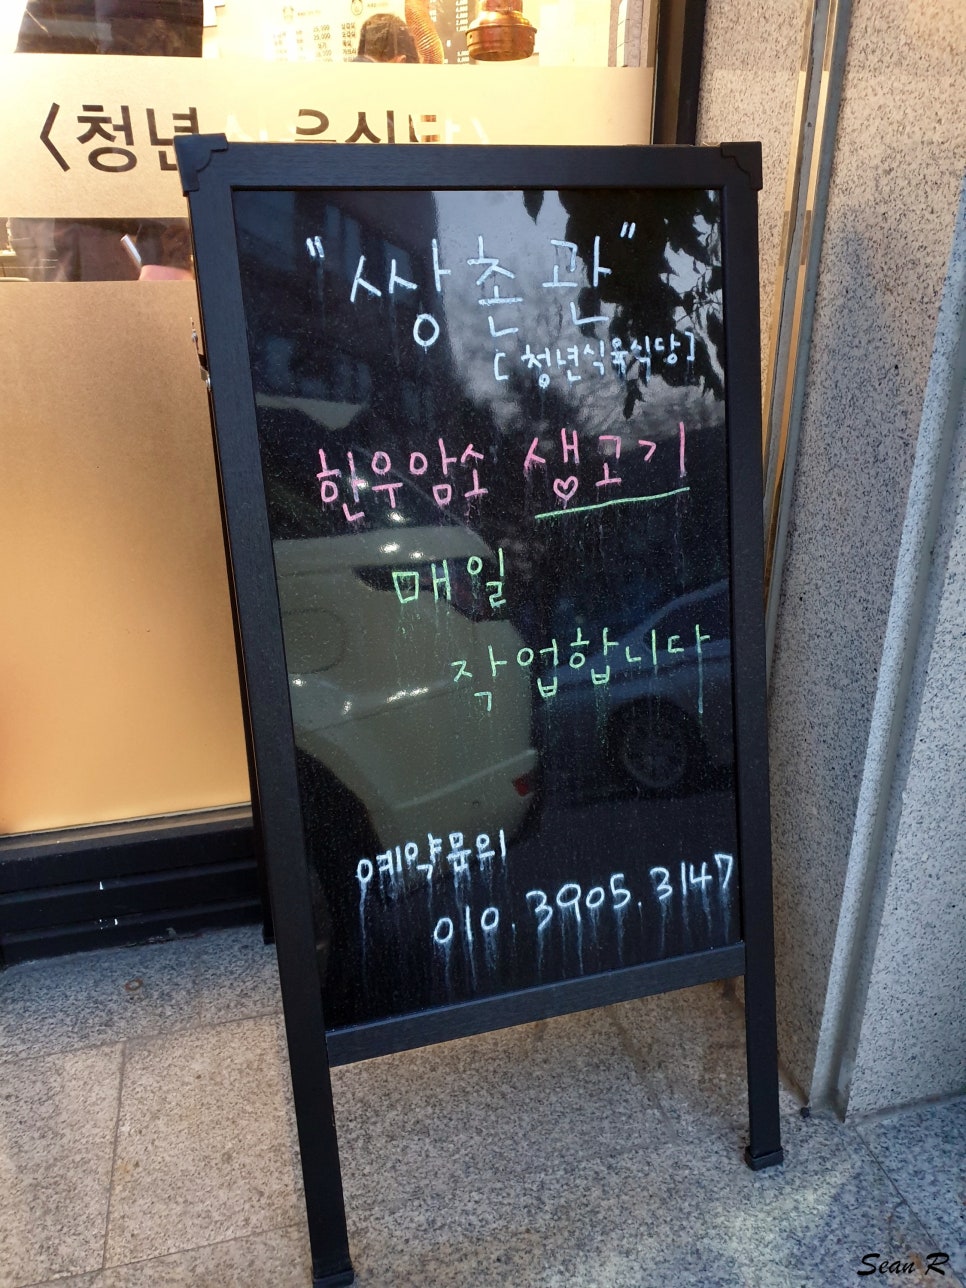 <청년식육식당>
"상촌관"
[청년식육식당]
한우암소 생고기
매일
작업합니다
예약문의
010.3905.3147
Sean R